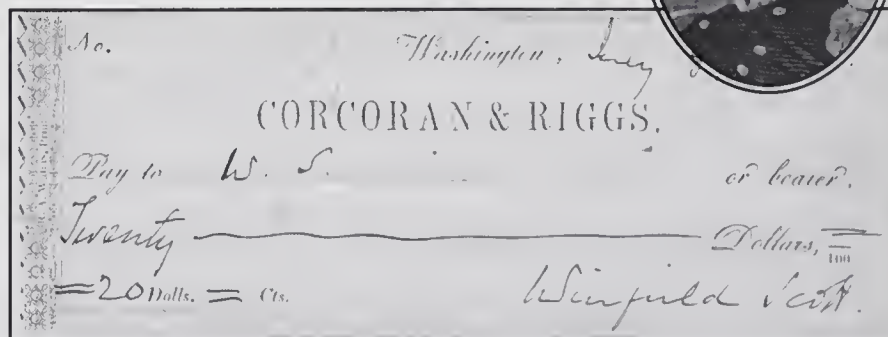 No. Washington,
CORCORAN & RIGGS.
Pay to W. S. or bearer.
Twenty Dollars, = 100
=20 Dolls. = Cts. Winfield Scott.